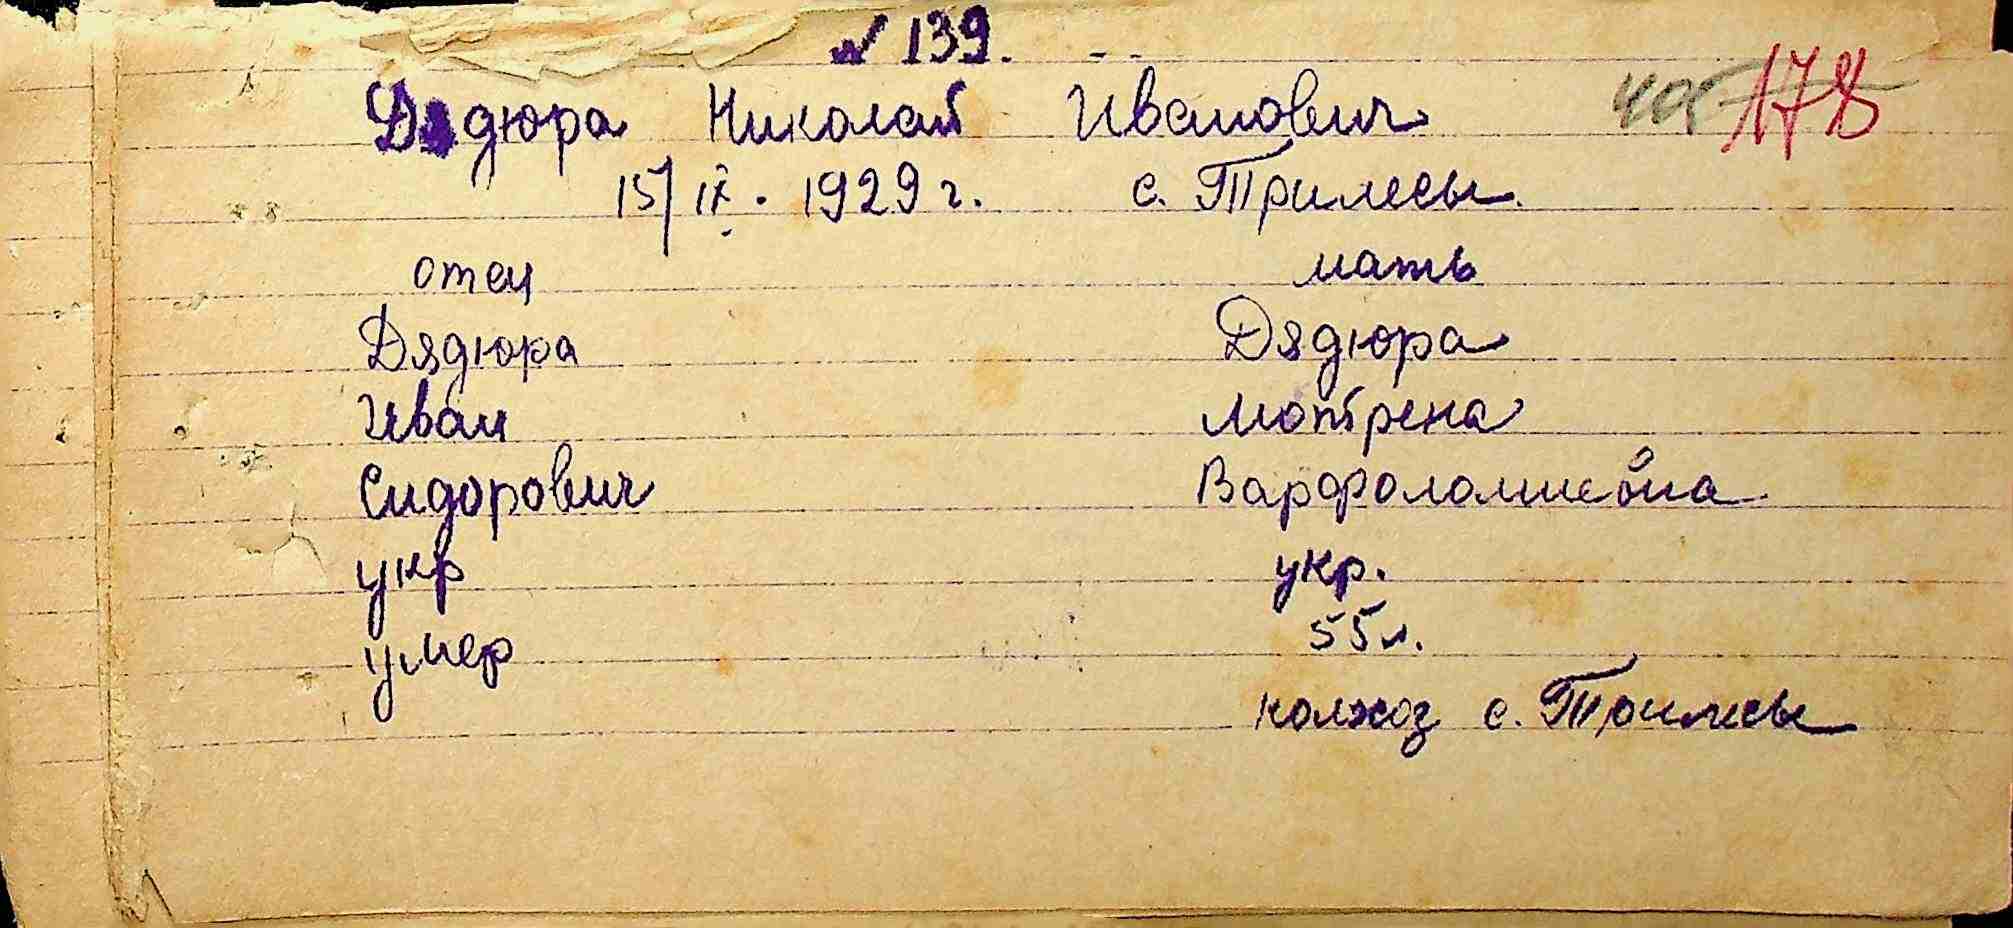 № 139.
Дядюра Николай Иванович 178
15/IX. 1929 г. с. Трилесы.
отец мать
Дядюра Дядюра
Иван Мотрена
Сидорович Варфоломиевна
укр укр.
умер 55 л.
колхоз с. Трилесы